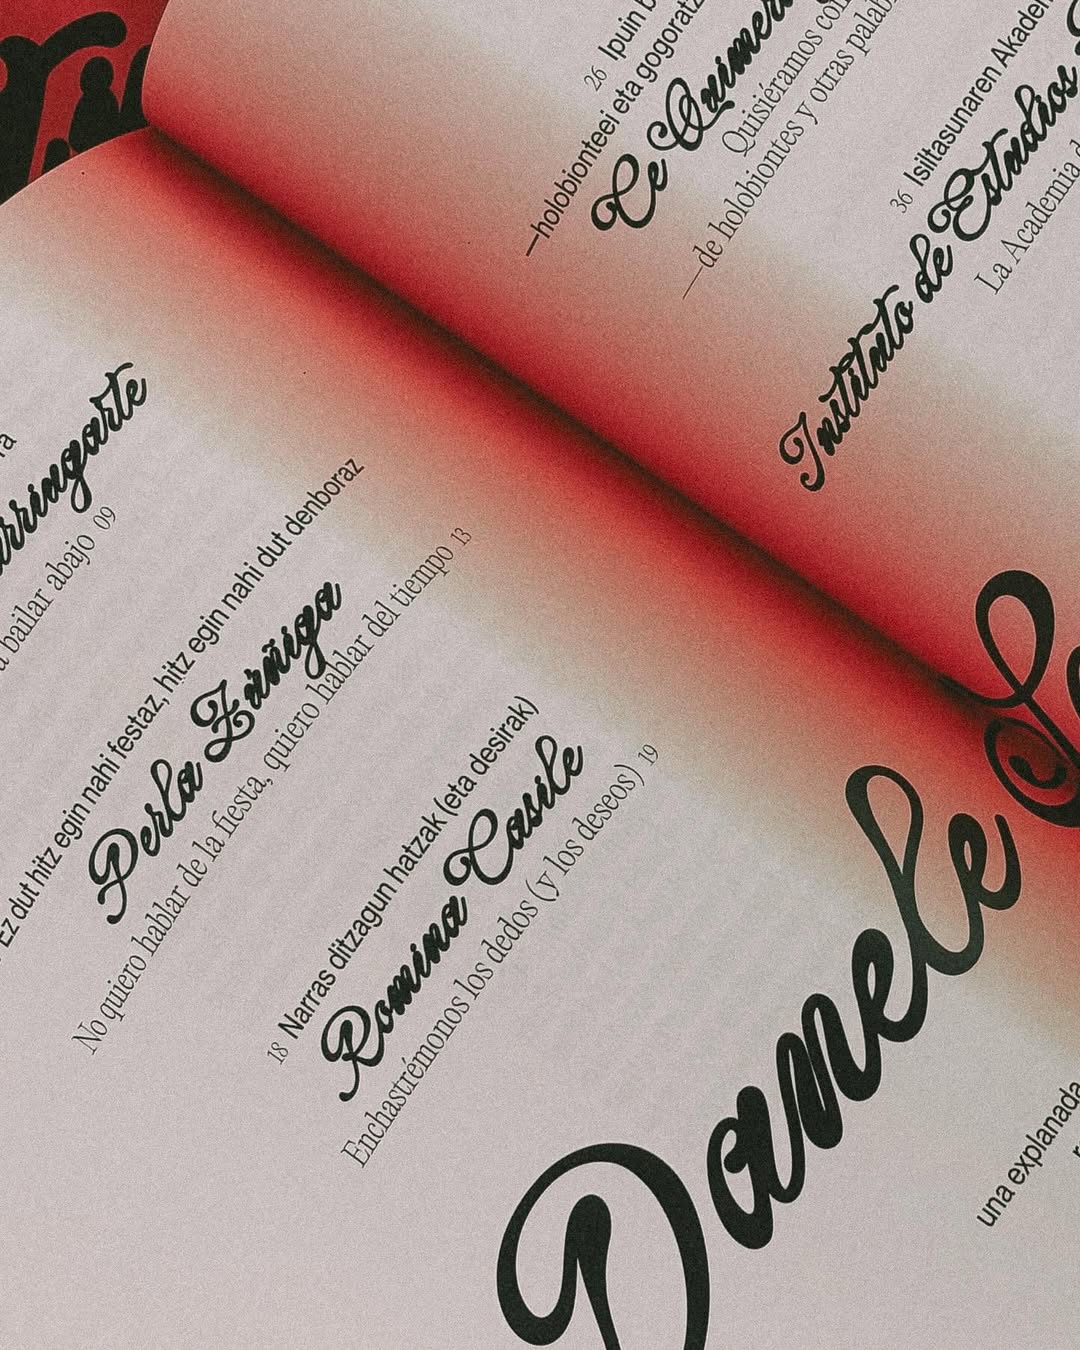 a bailar abajo 09
Ez dut hitz egin nahi festaz, hitz egin nahi dut denboraz
Perla Zúñiga
No quiero hablar de la fiesta, quiero hablar del tiempo 13
18 Narras ditzagun hatzak (eta desirak)
Romina Casile
Enchastrémonos los dedos (y los deseos) 19
26 Ipuin
—holobionteei eta gogoratz
Ce Quimera
Quisiéramos
—de holobiontes y otras palab
36 Isiltasunaren Akadem
Instituto de Estudios
La Academia d
Danele
una explanada